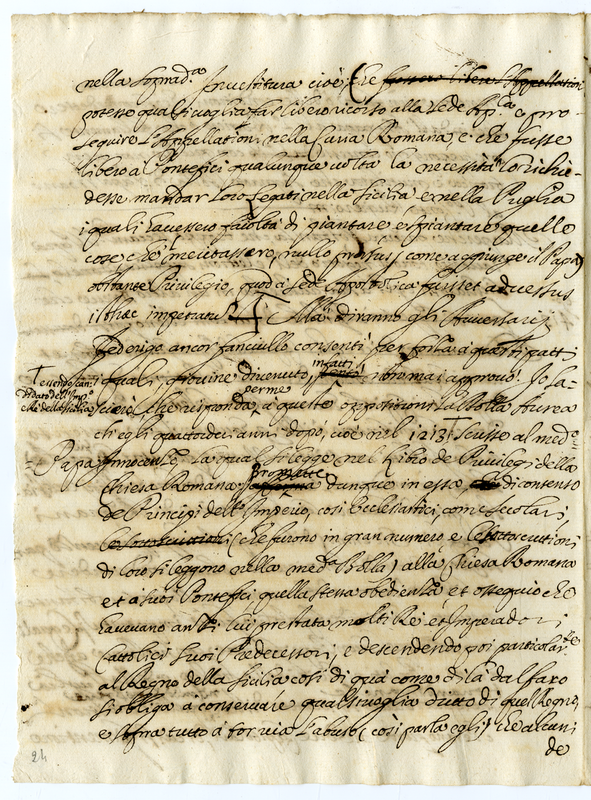 nella soprad.ª Inuestitura cioè, che fussero libere l'Appellationi
potesse qualsiuoglia far libero ricorso alla Sede Ap.ca e pro-
seguire l'Appellationi nella Curia Romana e che fusse
libero a Pontefici qualunque uolta la necessità lo richie-
desse mandar loro Legati nella Sicilia e nella Puglia
i quali hauessero facoltà di piantare e spiantare quelle
cose che meritassero, nullo prorsus, come aggiunge il Papa,
obstante Priuilegio, quod à Sede Apostolica fuisset aduersus
isthaec impetratu
diranno gli Auuersarij
Federigo ancor fanciullo consentì per forza a questi patti
i quali, giouine diuenuto, infatti non mai approuò. Io la-
† essendo
didato dell'Imp.o
che della Sicilia
scierò che risponda, perme a queste oppositioni la Bolla Aurea
ch'egli quattordici anni dopò, cioè nel 1213 † scrisse al med.o
Papa Innocenzo, la qual si legge nel Libro de Priuilegi della
Chiesa Romana. Promette dunque in essa di consenso
de Principi dell' Imperio, così Ecclesiastici, come secolari,
(che furono in gran numero, e le sottoscrittioni
di loro si leggono nella med.ª Bolla) alla Chiesa Romana
et a suoi Pontefici quella stessa obedienza et ossequio che
haueuano anzi lui prestata molti Re et Imperadori
Cattolici suoi Predecessori, e descendendo poi particolar.te
al Regno della Sicilia così di quà come di là dal faro
si obliga a conseruare qualsiuoglia dritto di quel Regno,
e sopra tutto a tor uia l'abuso (così parla egli) che alcuni
de
24